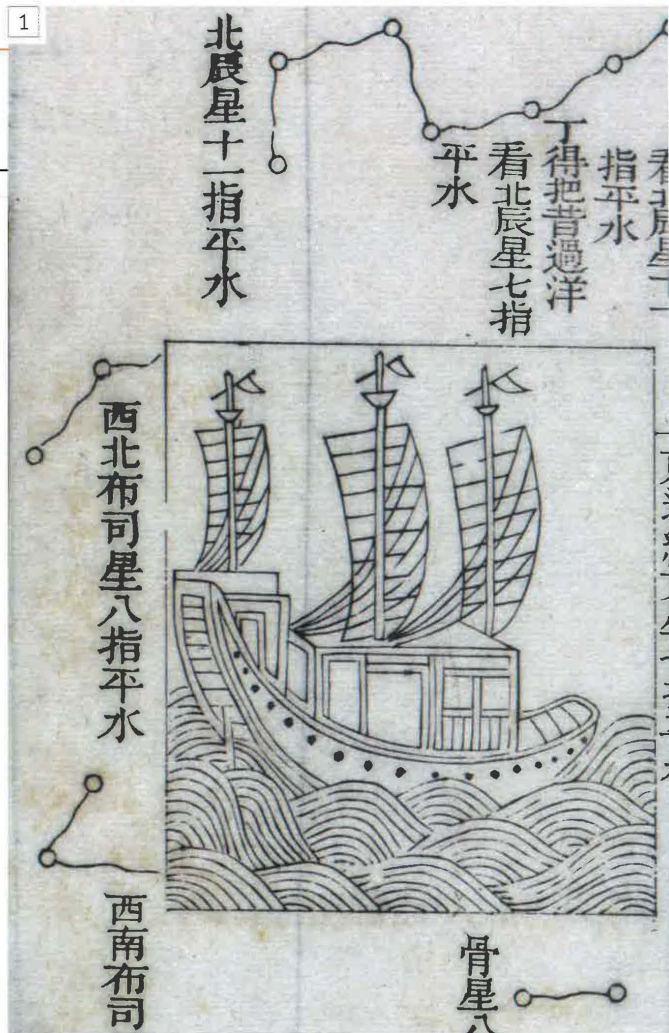 1
看北辰星
指平水
丁得把昔過洋
看北辰星七指
平水
北辰星十一指平水
西北布司星八指平水
骨星八
西南布司